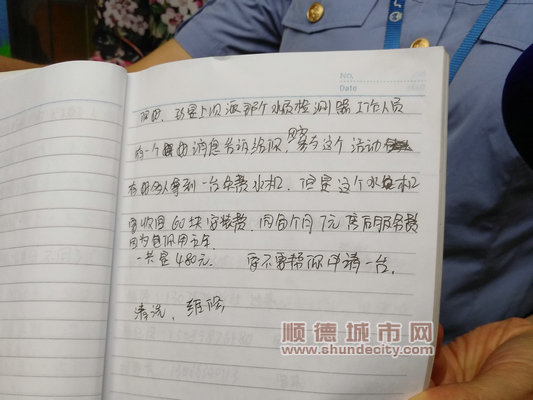 No.
Date
你好，我是上次派那个水质检测器工作人员
有一个好消息告诉给你，参与这个活动
有好多人得到一台免费水机，但是这个水机
要收回60块安装费，同每个月7元售后服务费
因为包你用五年
一共是480元． 要不要帮你申请一台．
清洗、维修
顺德城市网
www.shundecity.com